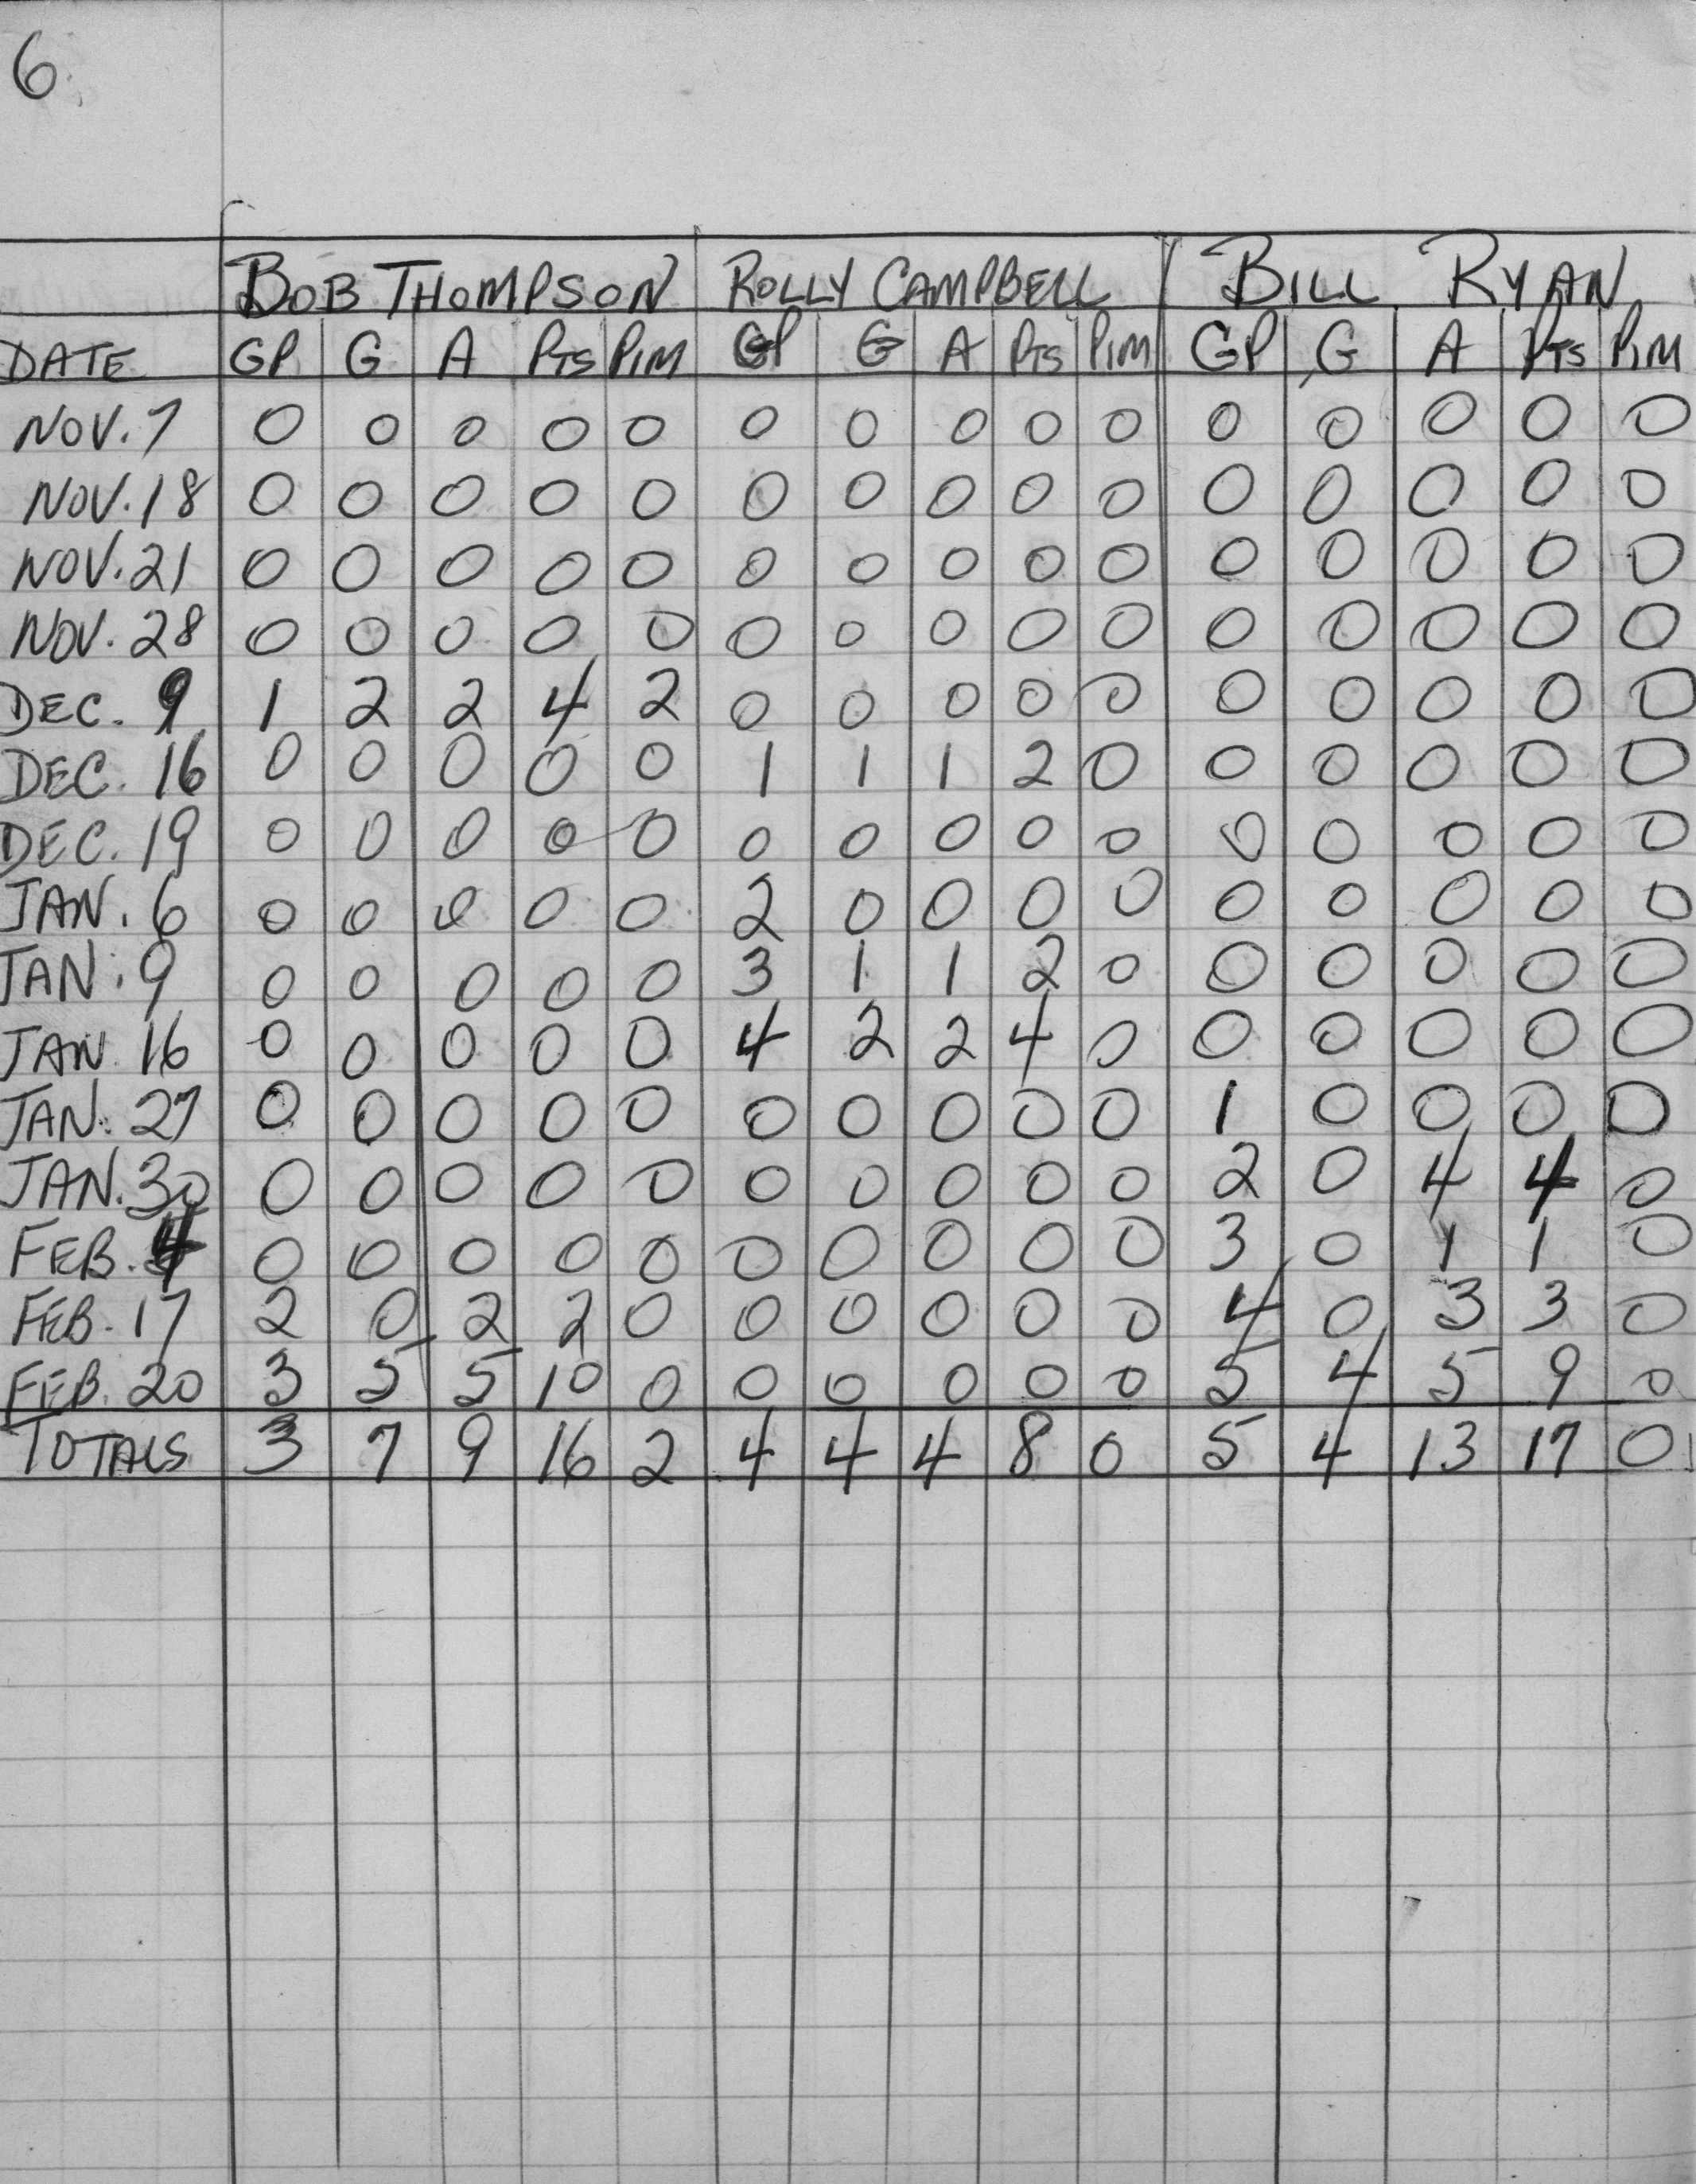 6.
BOB THOMPSON ROLLY CAMPBELL BILL RYAN
DATE GP G A PTS PIM GP G A PTS PIM GP G A PTS PIM
NOV. 7 0 0 0 0 0 0 0 0 0 0 0 0 0 0 0
NOV. 18 0 0 0 0 0 0 0 0 0 0 0 0 0 0 0
NOV. 21 0 0 0 0 0 0 0 0 0 0 0 0 0 0 0
NOV. 28 0 0 0 0 0 0 0 0 0 0 0 0 0 0 0
DEC. 9 1 2 2 4 2 0 0 0 0 0 0 0 0 0 0
DEC. 16 0 0 0 0 0 1 1 1 2 0 0 0 0 0 0
DEC. 19 0 0 0 0 0 0 0 0 0 0 0 0 0 0 0
JAN. 6 0 0 0 0 0 2 0 0 0 0 0 0 0 0 0
JAN. 9 0 0 0 0 0 3 1 1 2 0 0 0 0 0 0
JAN. 16 0 0 0 0 0 4 2 2 4 0 0 0 0 0 0
JAN. 27 0 0 0 0 0 0 0 0 0 0 1 0 0 0 0
JAN. 30 0 0 0 0 0 0 0 0 0 0 2 0 4 4 0
FEB. 4 0 0 0 0 0 0 0 0 0 0 3 0 1 1 0
FEB. 17 2 0 2 2 0 0 0 0 0 0 4 0 3 3 0
FEB. 20 3 5 5 10 0 0 0 0 0 0 5 4 5 9 0
TOTALS 3 7 9 16 2 4 4 4 8 0 5 4 13 17 0